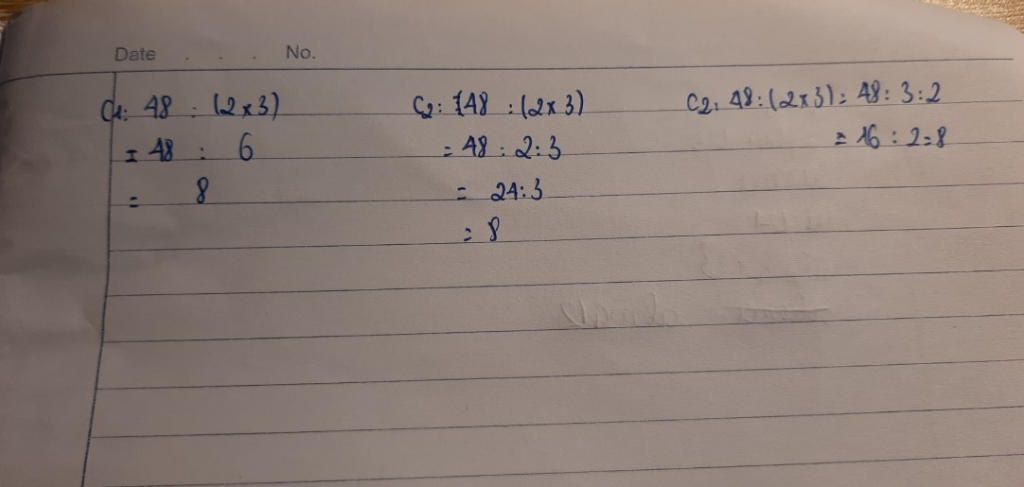 Date . . . . No.
C1: 48 : (2 x 3)
= 48 : 6
= 8
C2: 48 : (2x 3)
= 48 : 2 : 3
= 24 : 3
= 8
C2: 48 : (2x3) = 48 : 3 : 2
= 16 : 2 = 8